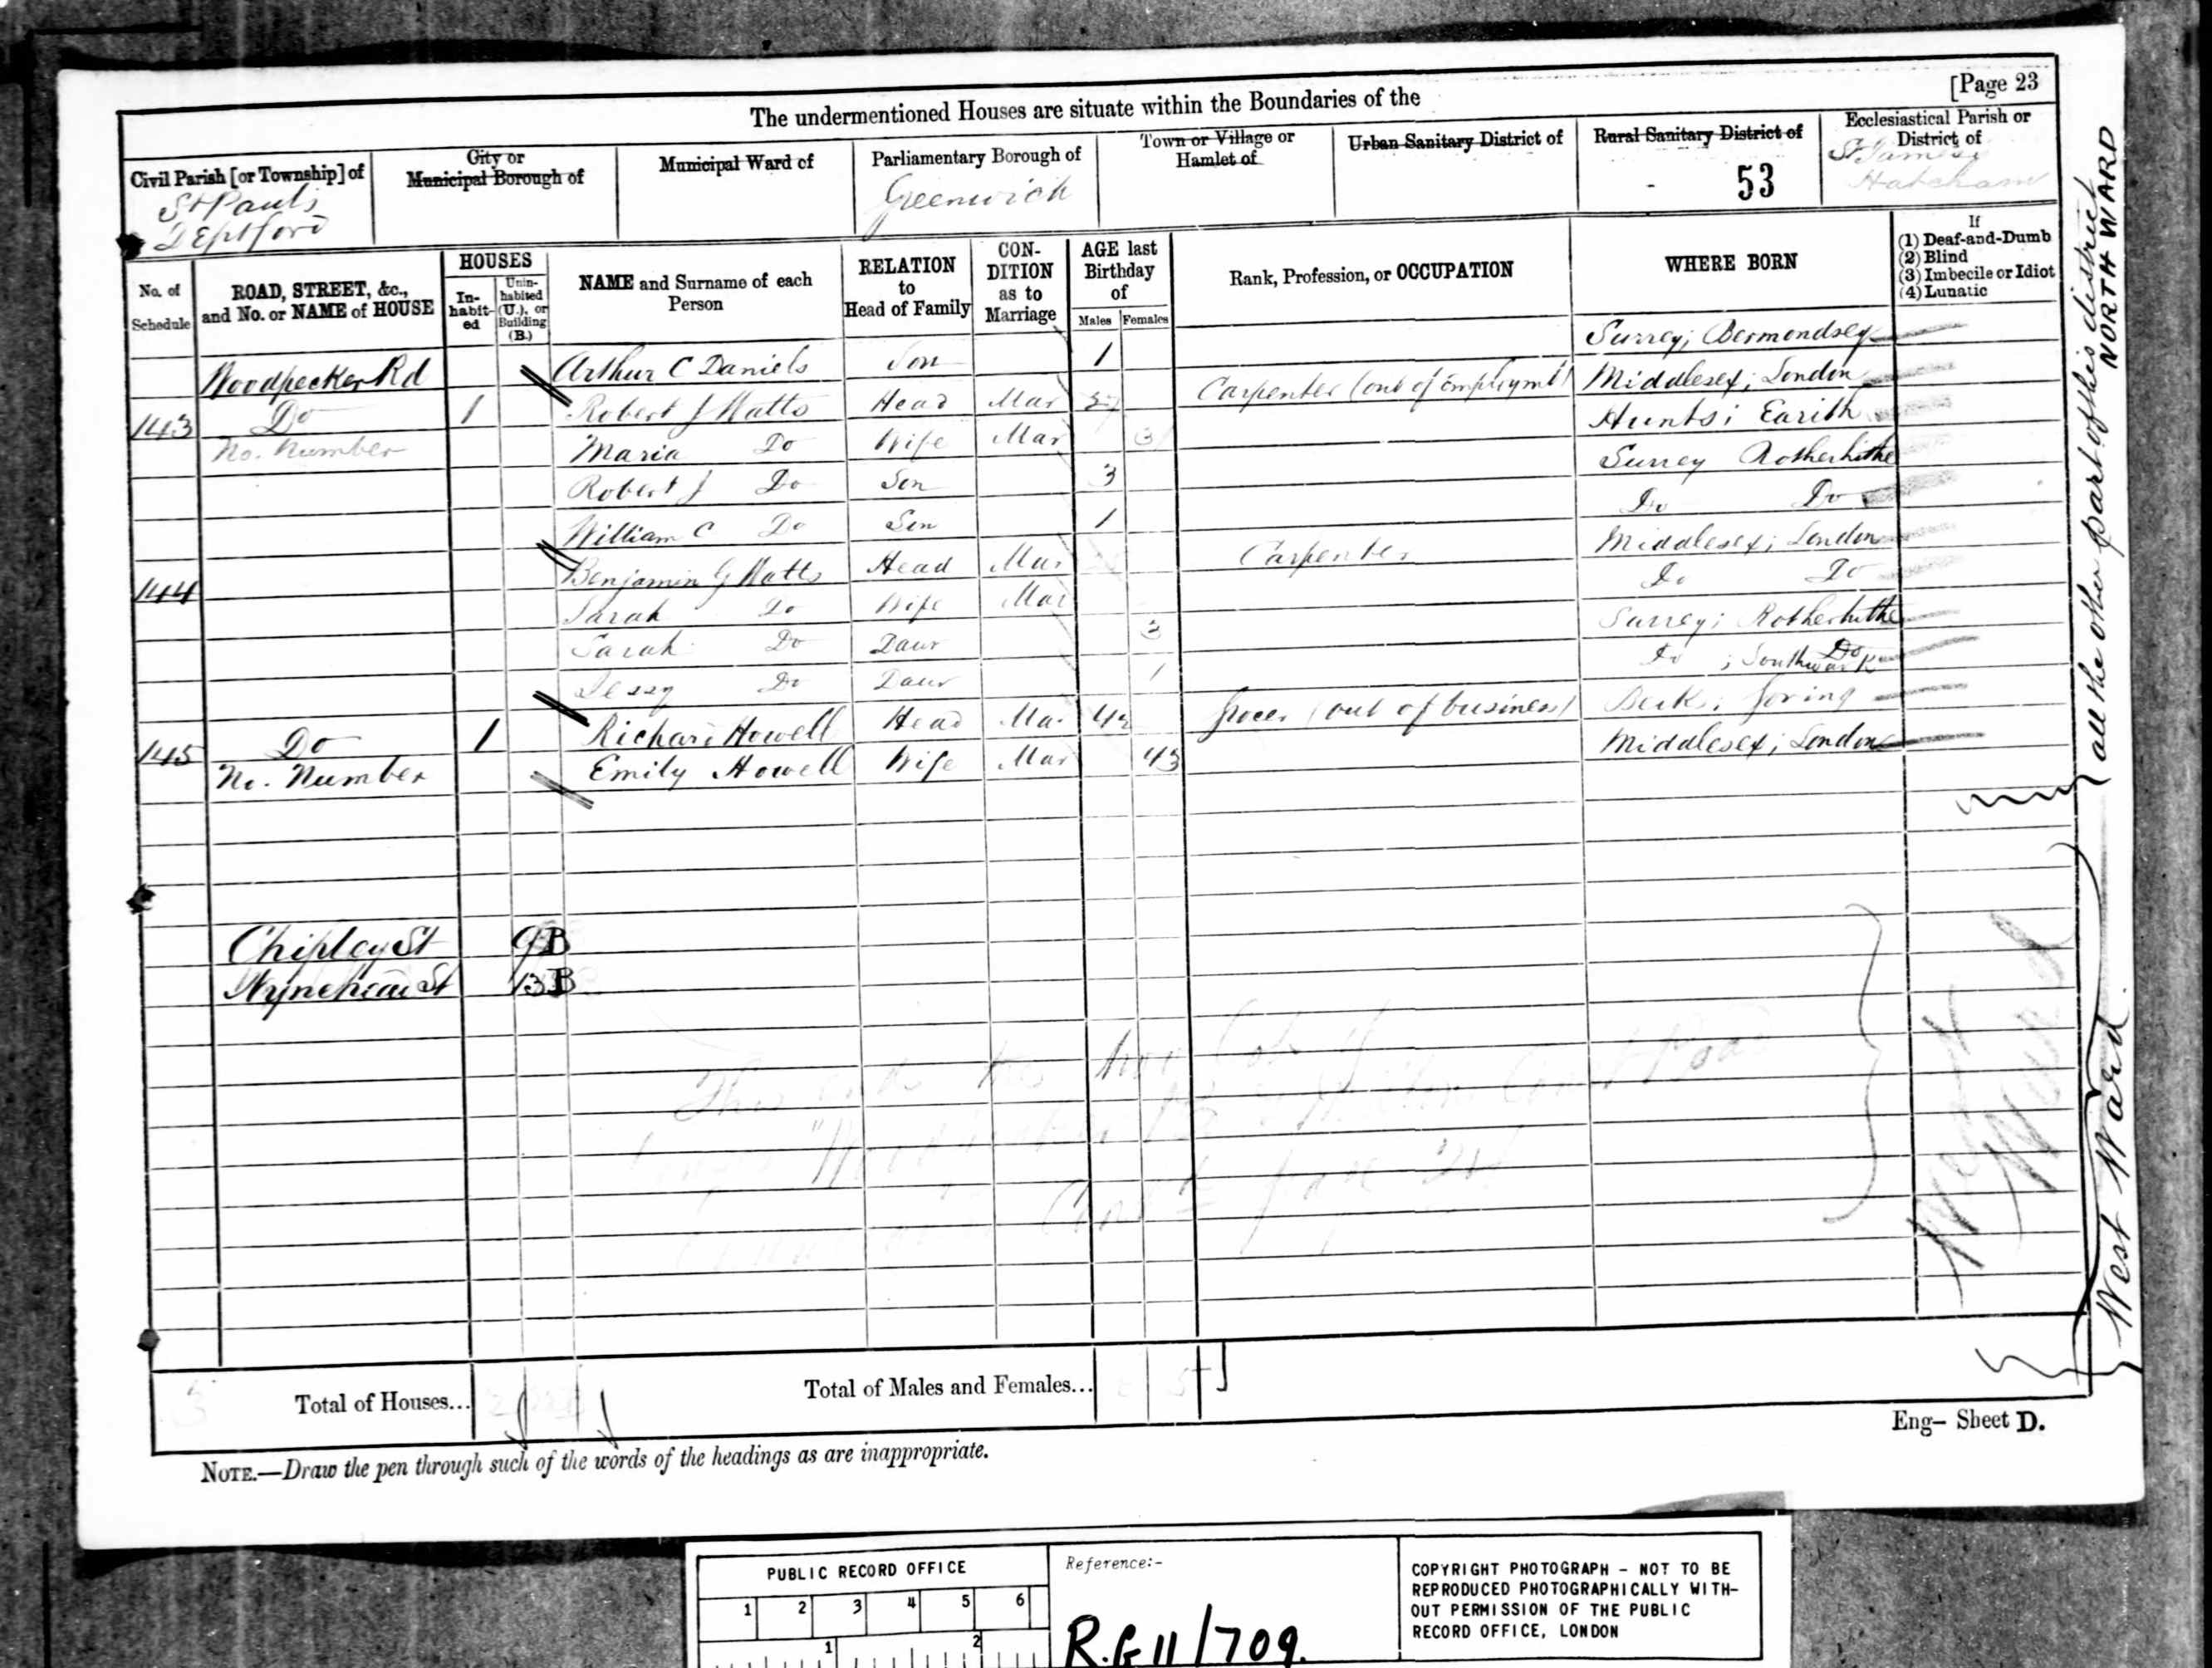 [Page 23
The undermentioned Houses are situate within the Boundaries of the
Civil Parish [or Township] of
St Pauls
Deptford
City or
Municipal Borough of
Municipal Ward of
Parliamentary Borough of
Greenwich
Town or Village or
Hamlet of
Urban Sanitary District of
Rural Sanitary District of
53
Ecclesiastical Parish or
District of
St James
Hatcham
No. of
Schedule
ROAD, STREET, &c.,
and No. or NAME of HOUSE
HOUSES
In-
habit-
ed
Unin-
habited
(U.), or
Building
(B.)
NAME and Surname of each
Person
RELATION
to
Head of Family
CON-
DITION
as to
Marriage
AGE last
Birthday
of
Males Females
Rank, Profession, or OCCUPATION
WHERE BORN
If
(1) Deaf-and-Dumb
(2) Blind
(3) Imbecile or Idiot
(4) Lunatic
Woodpecker Rd Arthur C Daniels Son 1 Surrey; Bermondsey
143 Do 1 Robert J Watts Head Mar Carpenter (out of Employmt) Middlesex; London
No. Number Maria Do Wife Mar Hunts; Earith
Robert J Do Son 3 Surrey Rotherhithe
William C Do Son 1 Do Do
144 Benjamin G Watts Head Mar Carpenter Middlesex; London
Sarah Do Wife Mar Do Do
Sarah Do Daur 3 Surrey; Rotherhithe
Jessy Do Daur 1 Do ; Southwark Do
145 Do 1 Richard Howell Head Mar 42 Grocer (out of business) Berks; Goring
No. Number Emily Howell Wife Mar 43 Middlesex; London
Chipley St 9B
Nynehead St 13B
Total of Houses...
Total of Males and Females... 5
Eng— Sheet D.
NOTE.—Draw the pen through such of the words of the headings as are inappropriate.
all the other part of this district
NORTH WARD
West Ward
West Ward.
PUBLIC RECORD OFFICE
1 2 3 4 5 6
1 2
Reference:-
R.G 11/709.
COPYRIGHT PHOTOGRAPH – NOT TO BE
REPRODUCED PHOTOGRAPHICALLY WITH-
OUT PERMISSION OF THE PUBLIC
RECORD OFFICE, LONDON